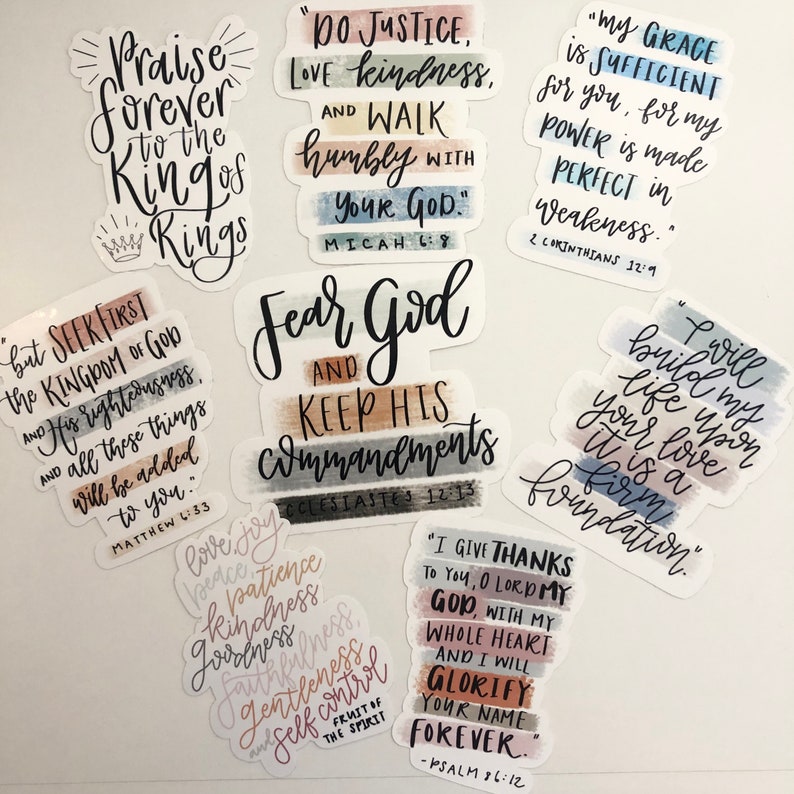 Praise
forever
to the
King of
Kings
"DO JUSTICE,
LOVE kindness,
AND WALK
humbly WITH
YOUR GOD."
MICAH 6:8
"my GRACE
is SUFFICIENT
for you, for my
POWER is made
PERFECT in
weakness."
2 CORINTHIANS 12:9
"but SEEK FIRST
the KINGDOM OF GOD
AND His righteousness,
AND all these things
will be added
to you."
MATTHEW 6:33
Fear God
AND
KEEP HIS
commandments
ECCLESIASTES 12:13
"I will
build my
life upon
your love
it is a
firm
foundation."
love, joy
peace,
patience
kindness
goodness
faithfulness,
gentleness
and self control
FRUIT OF
THE SPIRIT
"I GIVE THANKS
TO YOU, O LORD MY
GOD, WITH MY
WHOLE HEART
AND I WILL
GLORIFY
YOUR NAME
FOREVER."
-PSALM 86:12